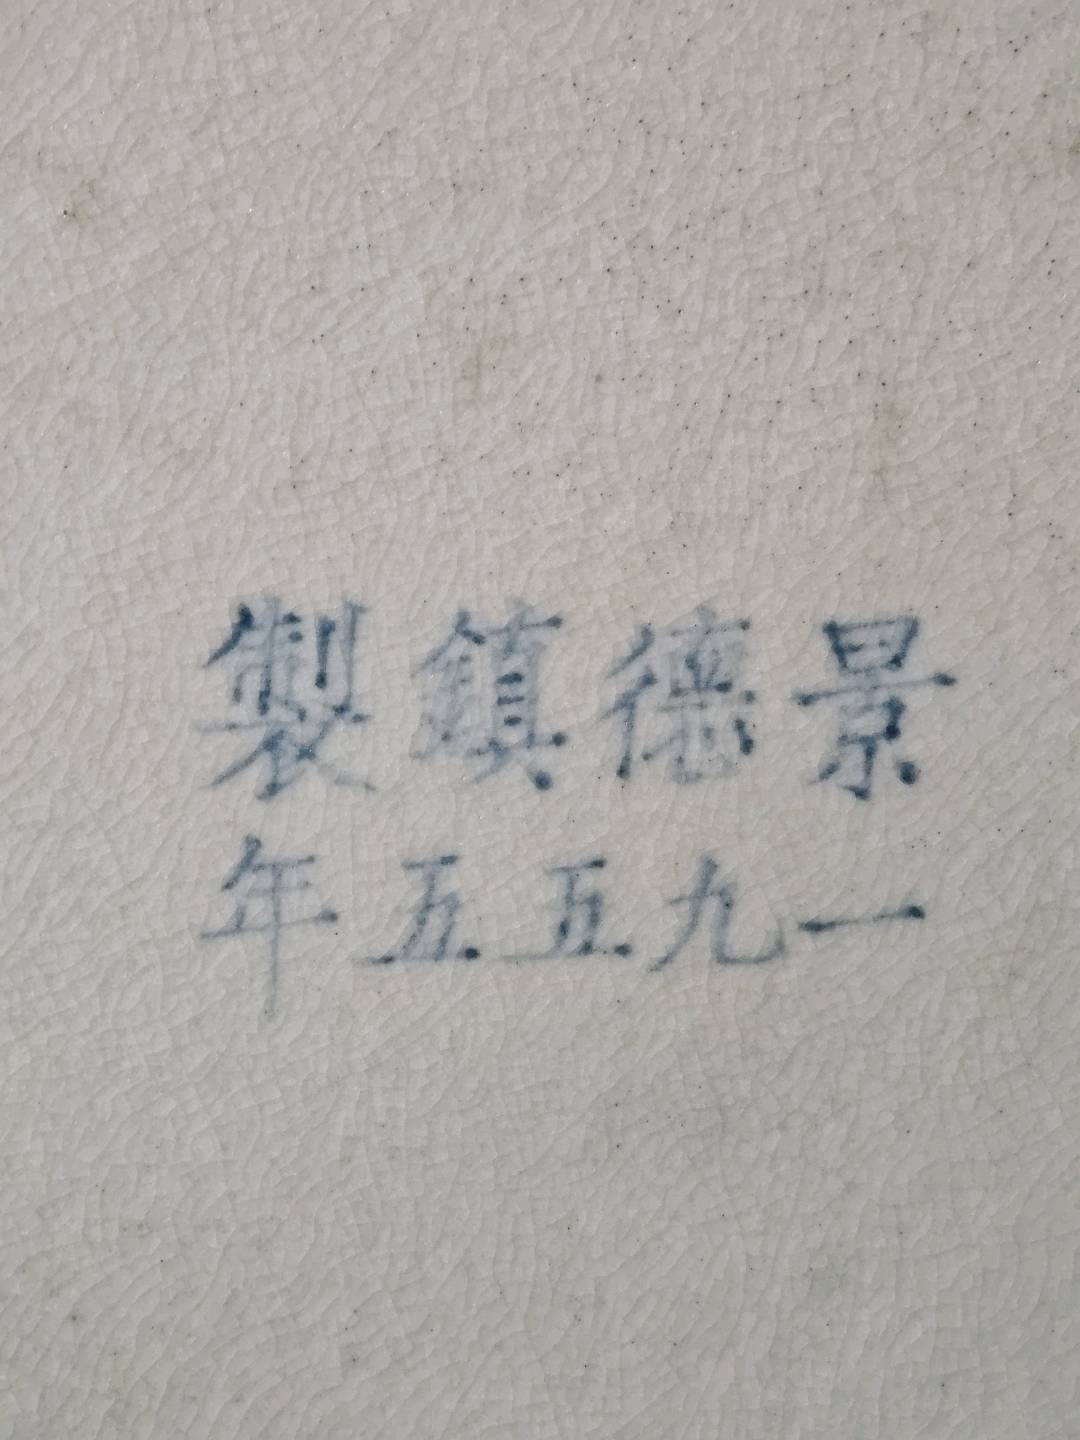 景德鎮製
一九五五年